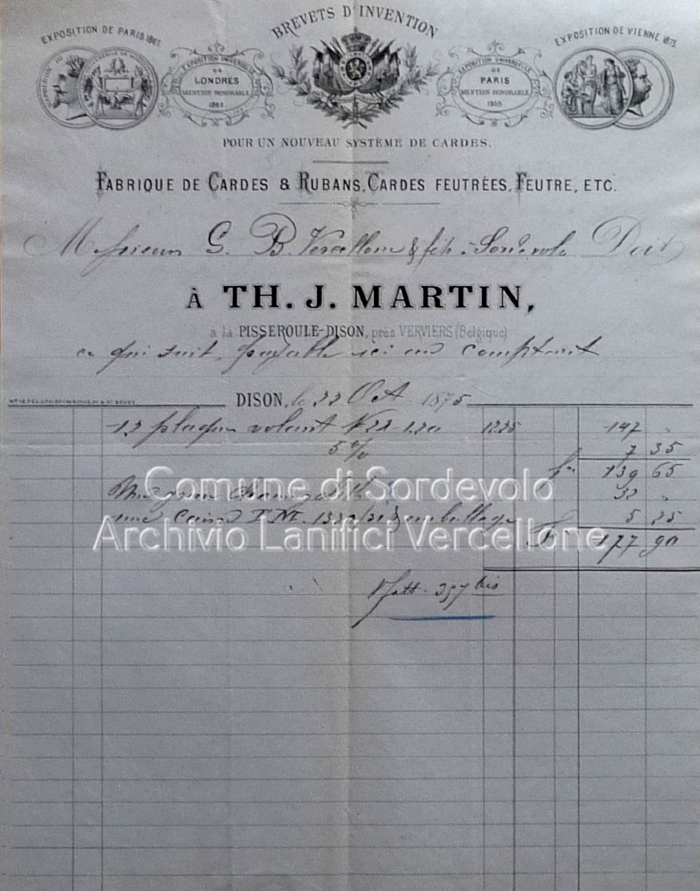 BREVETS D'INVENTION
EXPOSITION DE PARIS 1867.
EXPOSITION UNIVERSELLE
DE
LONDRES
MENTION HONORABLE
1862
EXPOSITION UNIVERSELLE
DE
PARIS
MENTION HONORABLE
1855
EXPOSITION DE VIENNE 1873.
POUR UN NOUVEAU SYSTÈME DE CARDES.
FABRIQUE DE CARDES & RUBANS, CARDES FEUTRÉES, FEUTRE, ETC.
Messieurs G. B. Vercellone & fils à Sordevolo Doit
À TH. J. MARTIN,
à la PISSEROULE-DISON, près VERVIERS (Belgique)
ce qui suit, payable ici au comptant
DISON, le 22 Oct 1875
12 plaques volant N 22 1225 147 "
5 % 7 35
fr 139 65
Comune di Sordevolo
33 "
une emballage 5 25
Archivio Lanifici Vercellone
Fr 177 90
357 bis